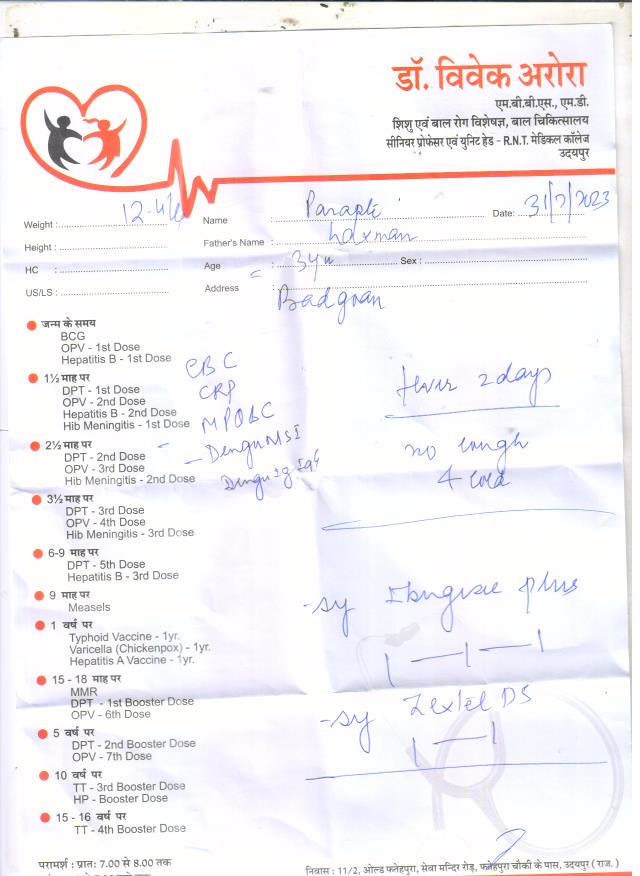 डॉ. विवेक अरोरा
एम.बी.बी.एस., एम.डी.
शिशु एवं बाल रोग विशेषज्ञ, बाल चिकित्सालय
सीनियर प्रोफेसर एवं युनिट हेड - R.N.T. मेडिकल कॉलेज
उदयपुर
Weight : 12.4 kg
Name :
Date: 31/7/2023
Height :
Father's Name : Laxman
HC :
Age : 3yr Sex :
US/LS :
Address : Badgoan
जन्म के समय
BCG
OPV - 1st Dose
Hepatitis B - 1st Dose
1½ माह पर
DPT - 1st Dose
OPV - 2nd Dose
Hepatitis B - 2nd Dose
Hib Meningitis - 1st Dose
2½ माह पर
DPT - 2nd Dose
OPV - 3rd Dose
Hib Meningitis - 2nd Dose
3½ माह पर
DPT - 3rd Dose
OPV - 4th Dose
Hib Meningitis - 3rd Dose
6-9 माह पर
DPT - 5th Dose
Hepatitis B - 3rd Dose
9 माह पर
Measels
1 वर्ष पर
Typhoid Vaccine - 1yr.
Varicella (Chickenpox) - 1yr.
Hepatitis A Vaccine - 1yr.
15 - 18 माह पर
MMR
DPT - 1st Booster Dose
OPV - 6th Dose
5 वर्ष पर
DPT - 2nd Booster Dose
OPV - 7th Dose
10 वर्ष पर
TT - 3rd Booster Dose
HP - Booster Dose
15 - 16 वर्ष पर
TT - 4th Booster Dose
CBC
CRP
Dengu NS1
Dengu
fever 2 days
no cough
& cold
- sy plus
1 — 1 — 1
- sy DS
1 — 1
परामर्श : प्रातः 7.00 से 8.00 तक
निवास : 11/2, ओल्ड फतेहपुरा, सेवा मन्दिर रोड़, फतेहपुरा चौकी के पास, उदयपुर ( राज. )